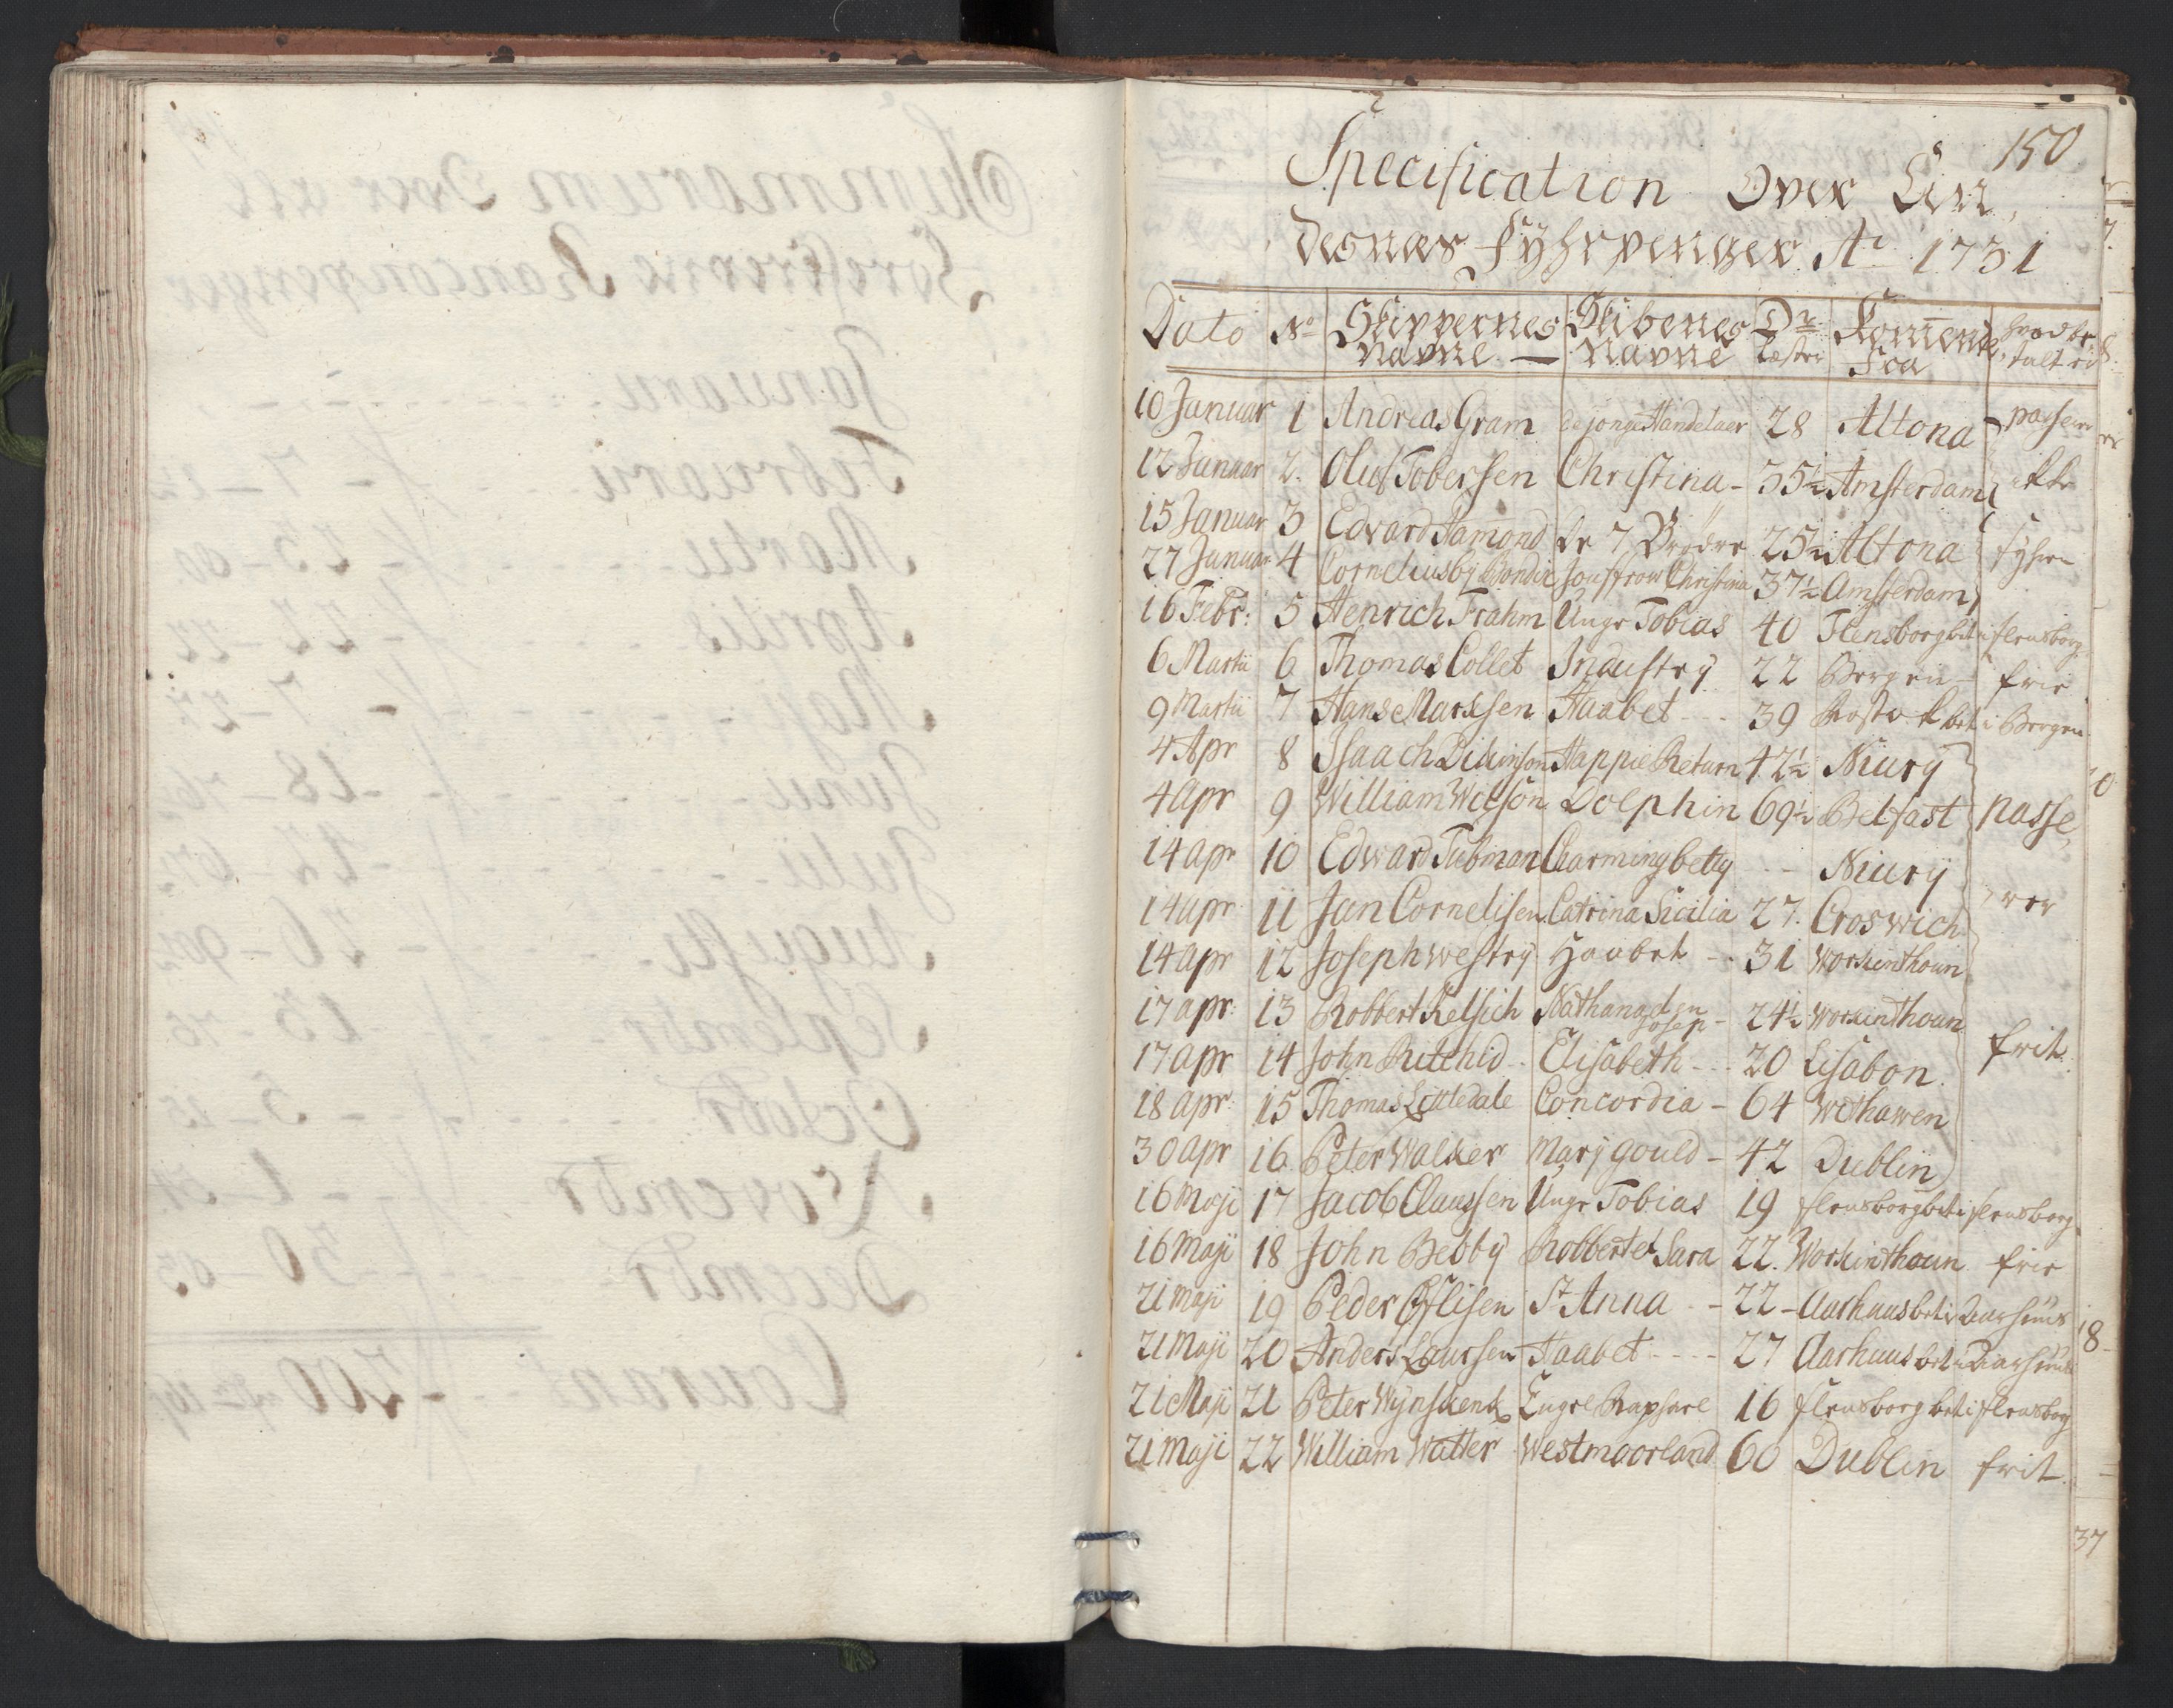 150
Specification Over Lin,
desnæs Fyhrpenger Ao 1731
Dato No Skippernes Navne — Skibenes Navne Dr Læster Komende Fra hvad be, talt er
10 Januar 1 Andreas Gram de jonge Handelaer 28 Altona passerer
12 Januar 2. Oluf Tobersen Christina - 35½ Amsterdam ikke
15 Januar 3 Edvard Hamond de 7 Brødre 25½ Altona fyhren
27 Januar 4 Cornelius by Bondix Jouffrow Christina 37½ Amsterdam
16 Febr: 5 Henrich Frahm Unge Tobias 40 Flensborg bet i flensborg
6 Martii 6 Thomas Collet Industry 22 Bergen - frie
9 Martii 7 Hans Marksen Haabet - - - 39 Rostok bet i Bergen
4 Apr 8 Isaach Dickinson Happie Return 42½ Niury
4 apr 9 William Wilson Dolphin 69½ Belfast passe,
14 apr 10 Edward Tubman Charming betty - - Niury
14 apr 11 Jan Cornelisen Catrina Sicilia 27. Croswich rer
14 apr 12 Joseph Westry Haabet - - 31 Workinthoun
17 apr: 13 Robbert Kelsich Nathanael en Josep - 24½ Workinthoun
17 apr 14 John Ritchid - Elisabeth - - - 20 Lisabon frit
18 apr: 15 Thomas Littledale Concordia - 64 Withawen
30 apr 16. Peter Walker Mary gould - 42 Dublin
16 Maji 17 Jacob Claussen Unge Tobias 19 flensborg bet i flensborg
16 Maji 18 John Bebby Robbert et Sara 22. Workinthoun frie
21 maji 19 Peder Øflisen St Anna - - 22 - Aarhuus bet i Aarhuus
21 Maji 20 Anders Laursen Haabet - - - - 27 Aarhuus bet i Aarhuus
21 Maji 21 Peter Wynskenk Engel Raphael 16 flensborg bet i flensborg
21 Maji 22 William Watter Westmoorland 60 Dublin frit